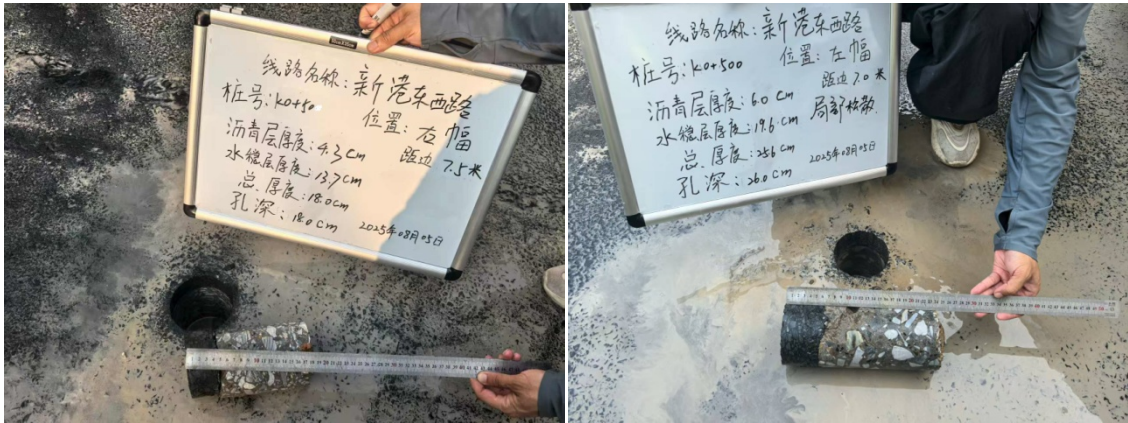 线路名称：新港东西路
桩号：K0+50
位置：左幅
沥青层厚度：4.3cm
距边 7.5米
水稳层厚度：13.7cm
总厚度：18.0cm
孔深：18.0cm
2025年08月05日
线路名称：新港东西路
桩号：K0+500
位置：左幅
距边 7.0米
沥青层厚度：6.0cm
局部松散
水稳层厚度：19.6cm
总厚度：25.6cm
2025年08月05日
孔深：26.0cm